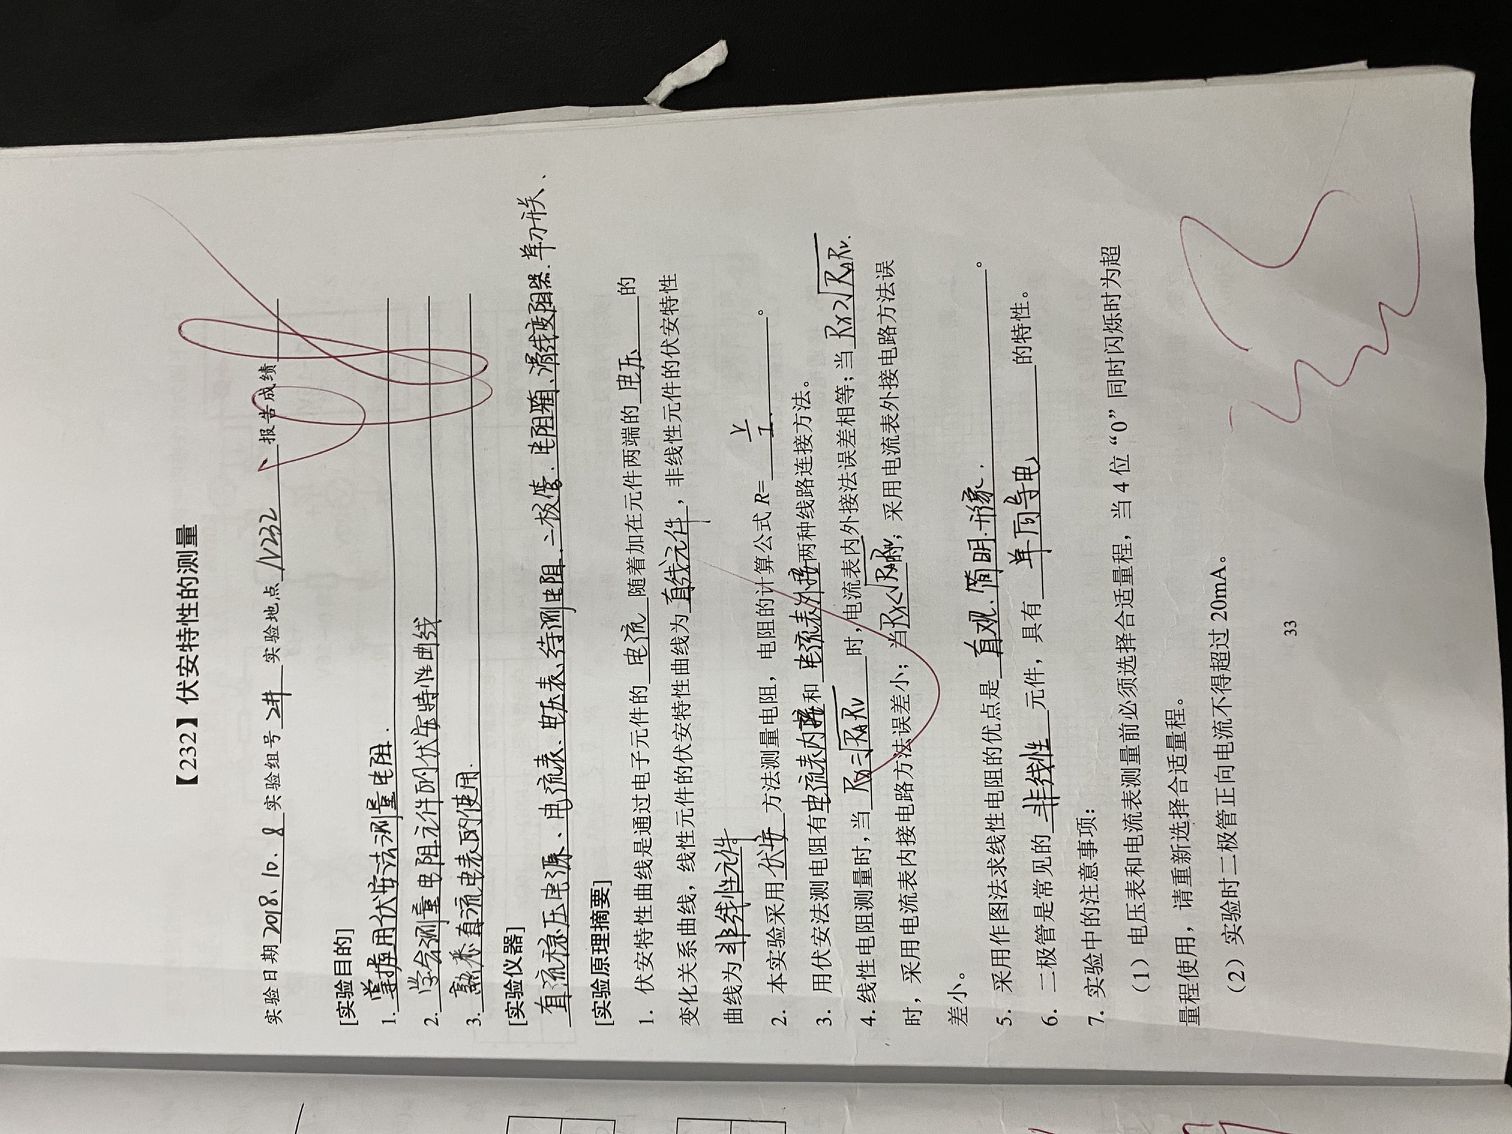 【232】伏安特性的测量
实验日期 2018.10.8 实验组号 2# 实验地点 N232 报告成绩
[实验目的]
1. 掌握用伏安法测量电阻.
2. 学会测量电阻元件的伏安特性曲线
3. 熟悉直流电表的使用.
[实验仪器]
直流稳压电源、电流表、电压表、待测电阻、二极管、电阻箱、滑线变阻器、单刀开关、
[实验原理摘要]
1. 伏安特性曲线是通过电子元件的 电流 随着加在元件两端的 电压 的
变化关系曲线，线性元件的伏安特性曲线为 直线元件 ，非线性元件的伏安特性
曲线为 非线性元件
2. 本实验采用 伏安 方法测量电阻，电阻的计算公式 R= V/I 。
3. 用伏安法测电阻有 电流表内接 和 电流表外接 两种线路连接方法。
4. 线性电阻测量时，当 Rx=√RARV 时，电流表内外接法误差相等；当 Rx>√RARV.
时，采用电流表内接电路方法误差小；当 Rx<√RARV 时，采用电流表外接电路方法误
差小。
5. 采用作图法求线性电阻的优点是 直观.简明.形象. 。
6. 二极管是常见的 非线性 元件，具有 单向导电 的特性。
7. 实验中的注意事项：
（1）电压表和电流表测量前必须选择合适量程，当 4 位“0”同时闪烁时为超
量程使用，请重新选择合适量程。
（2）实验时二极管正向电流不得超过 20mA。
33